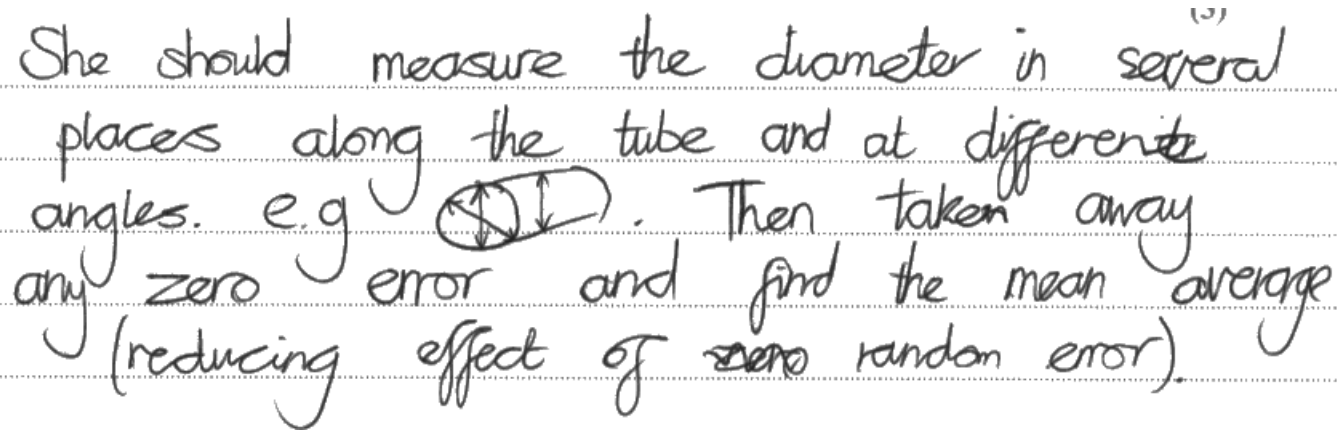 (3)
She should measure the diameter in several
places along the tube and at different
angles. e.g . Then taken away
any zero error and find the mean average
(reducing effect of zero random error).